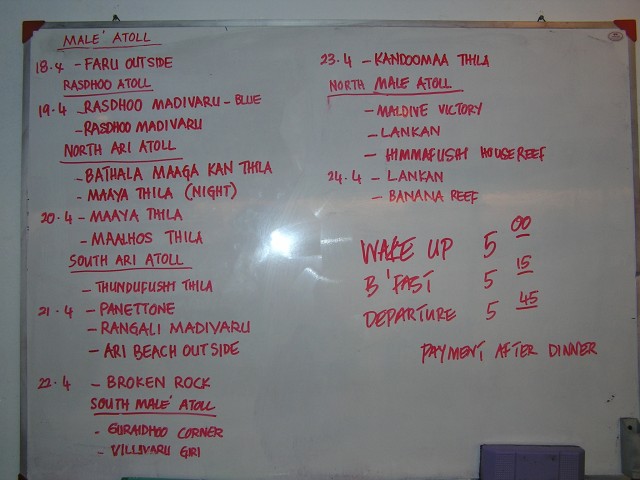 MALE' ATOLL
18.4 - FARU OUTSIDE
RASDHOO ATOLL
19.4 - RASDHOO MADIVARU - BLUE
- RASDHOO MADIVARU
NORTH ARI ATOLL
- BATHALA MAAGA KAN THILA
- MAAYA THILA (NIGHT)
20.4 - MAAYA THILA
- MAALHOS THILA
SOUTH ARI ATOLL
- THUNDUFUSHI THILA
21.4 - PANETTONE
- RANGALI MADIVARU
- ARI BEACH OUTSIDE
22.4 - BROKEN ROCK
SOUTH MALE' ATOLL
- GURAIDHOO CORNER
- VILLIVARU GIRI
23.4 - KANDOOMAA THILA
NORTH MALE ATOLL
- MALDIVE VICTORY
- LANKAN
- HIMMAFUSHI HOUSEREEF
24.4 - LANKAN
- BANANA REEF
WAKE UP 5 00
B'FAST 5 15
DEPARTURE 5 45
PAYMENT AFTER DINNER